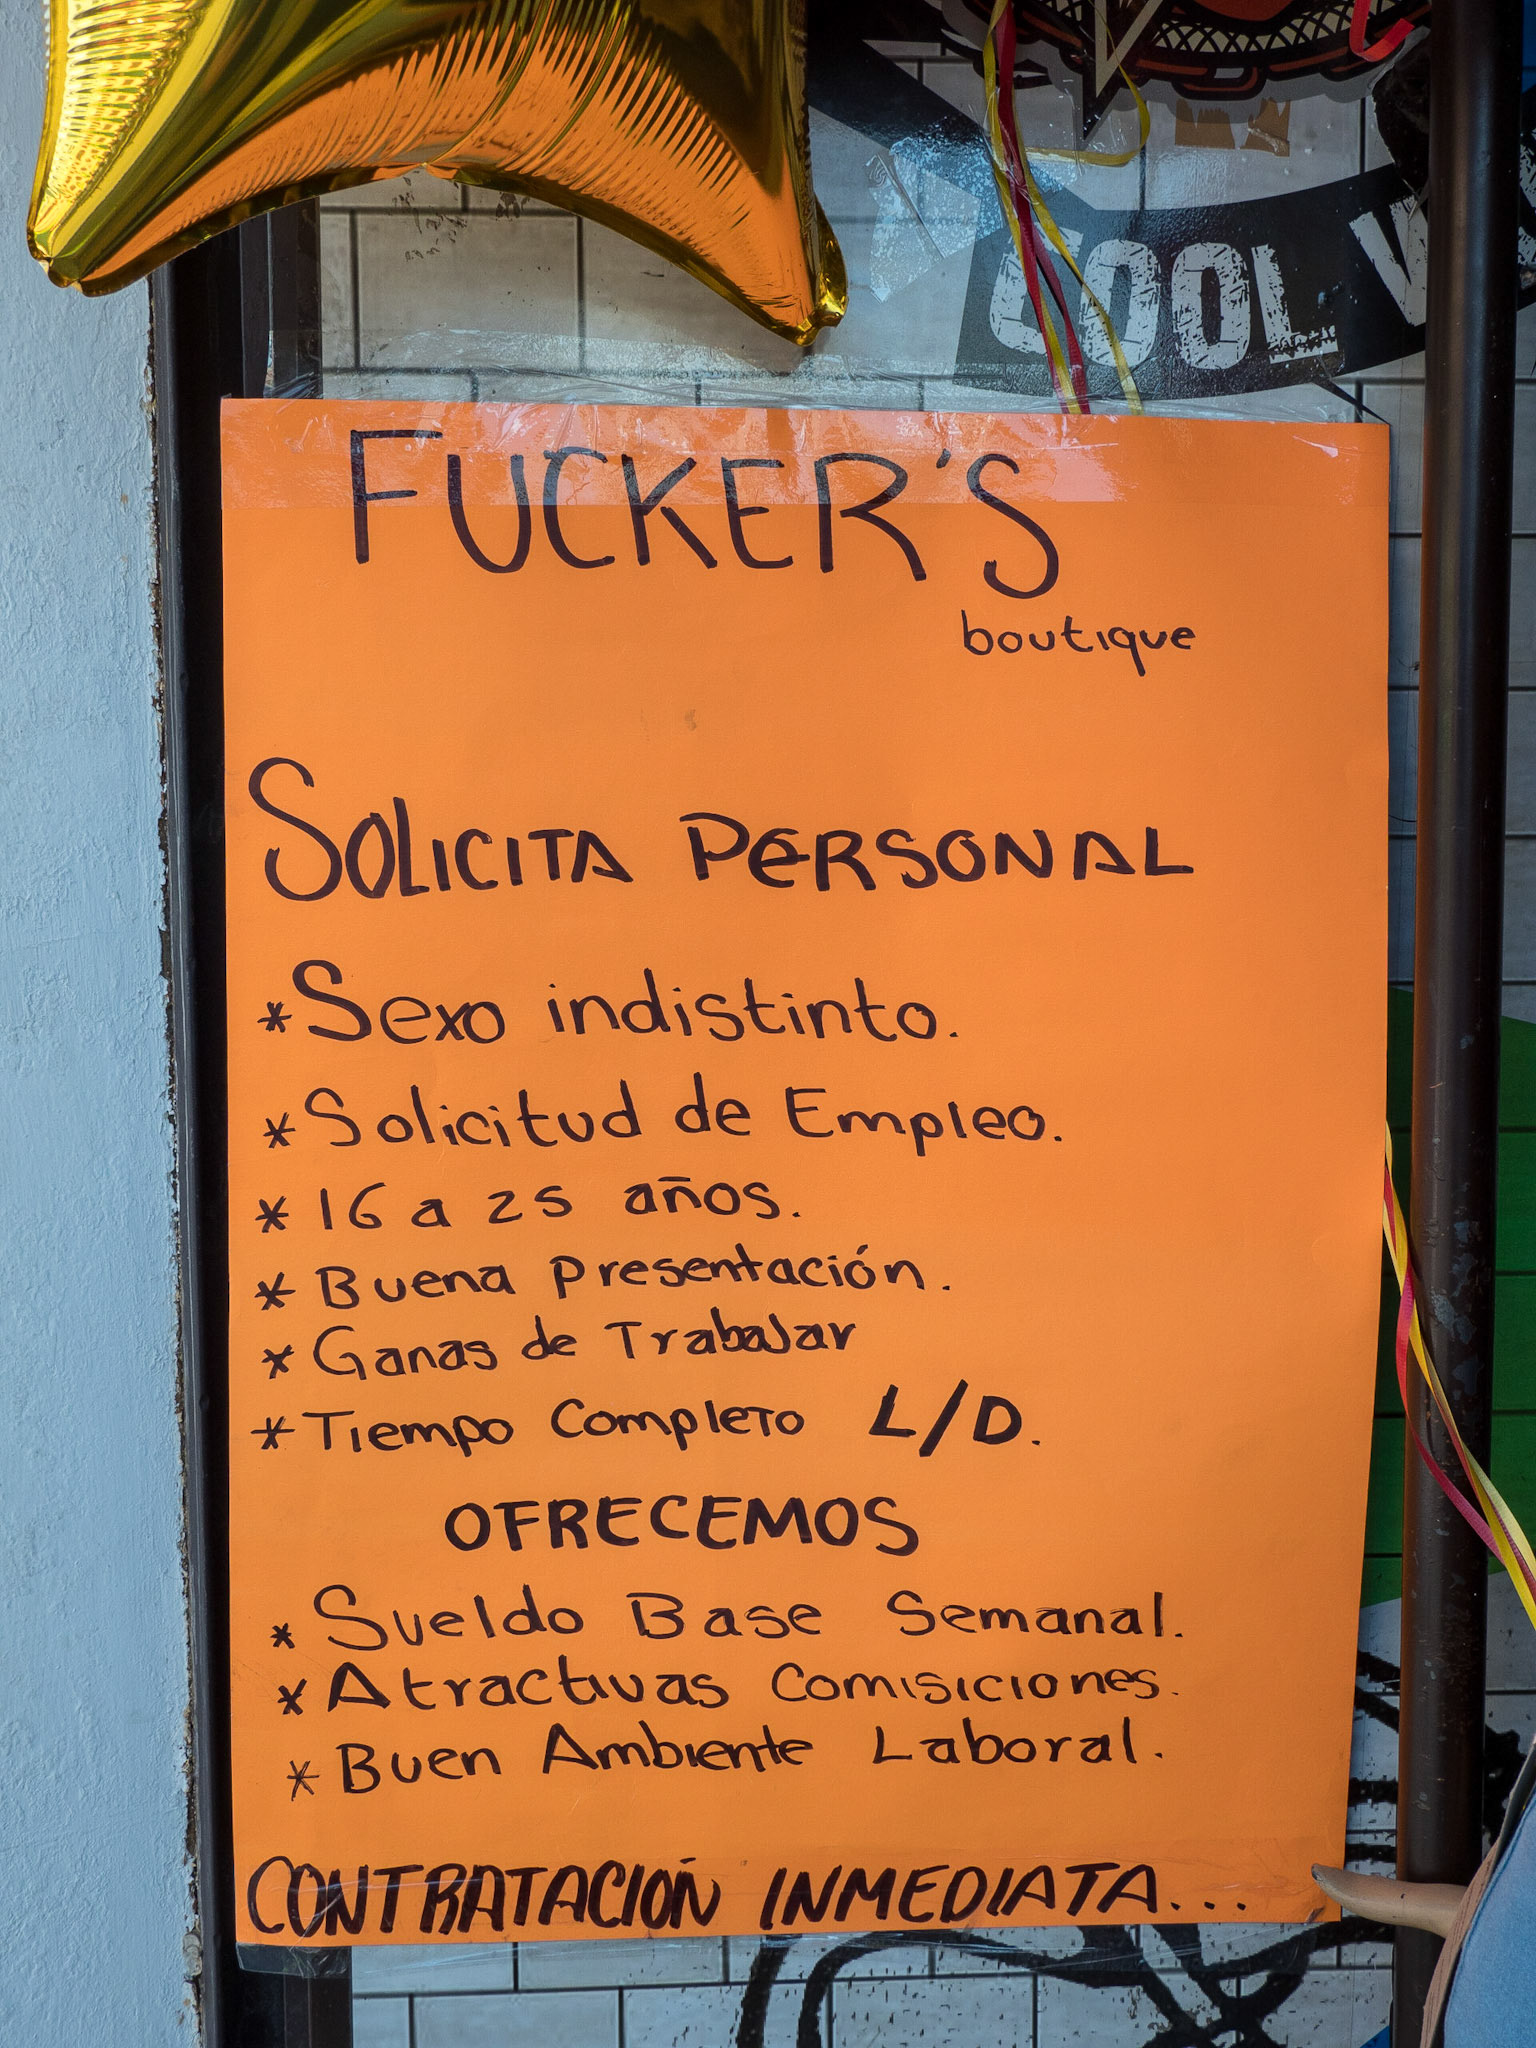 COOL
FUCKER'S
boutique
SOLICITA PERSONAL
* Sexo indistinto.
* Solicitud de Empleo.
* 16 a 25 años.
* Buena presentación.
* Ganas de Trabajar
* Tiempo Completo L/D.
OFRECEMOS
* Sueldo Base Semanal.
* Atractivas Comisiciones.
* Buen Ambiente Laboral.
CONTRATACIÓN INMEDIATA...